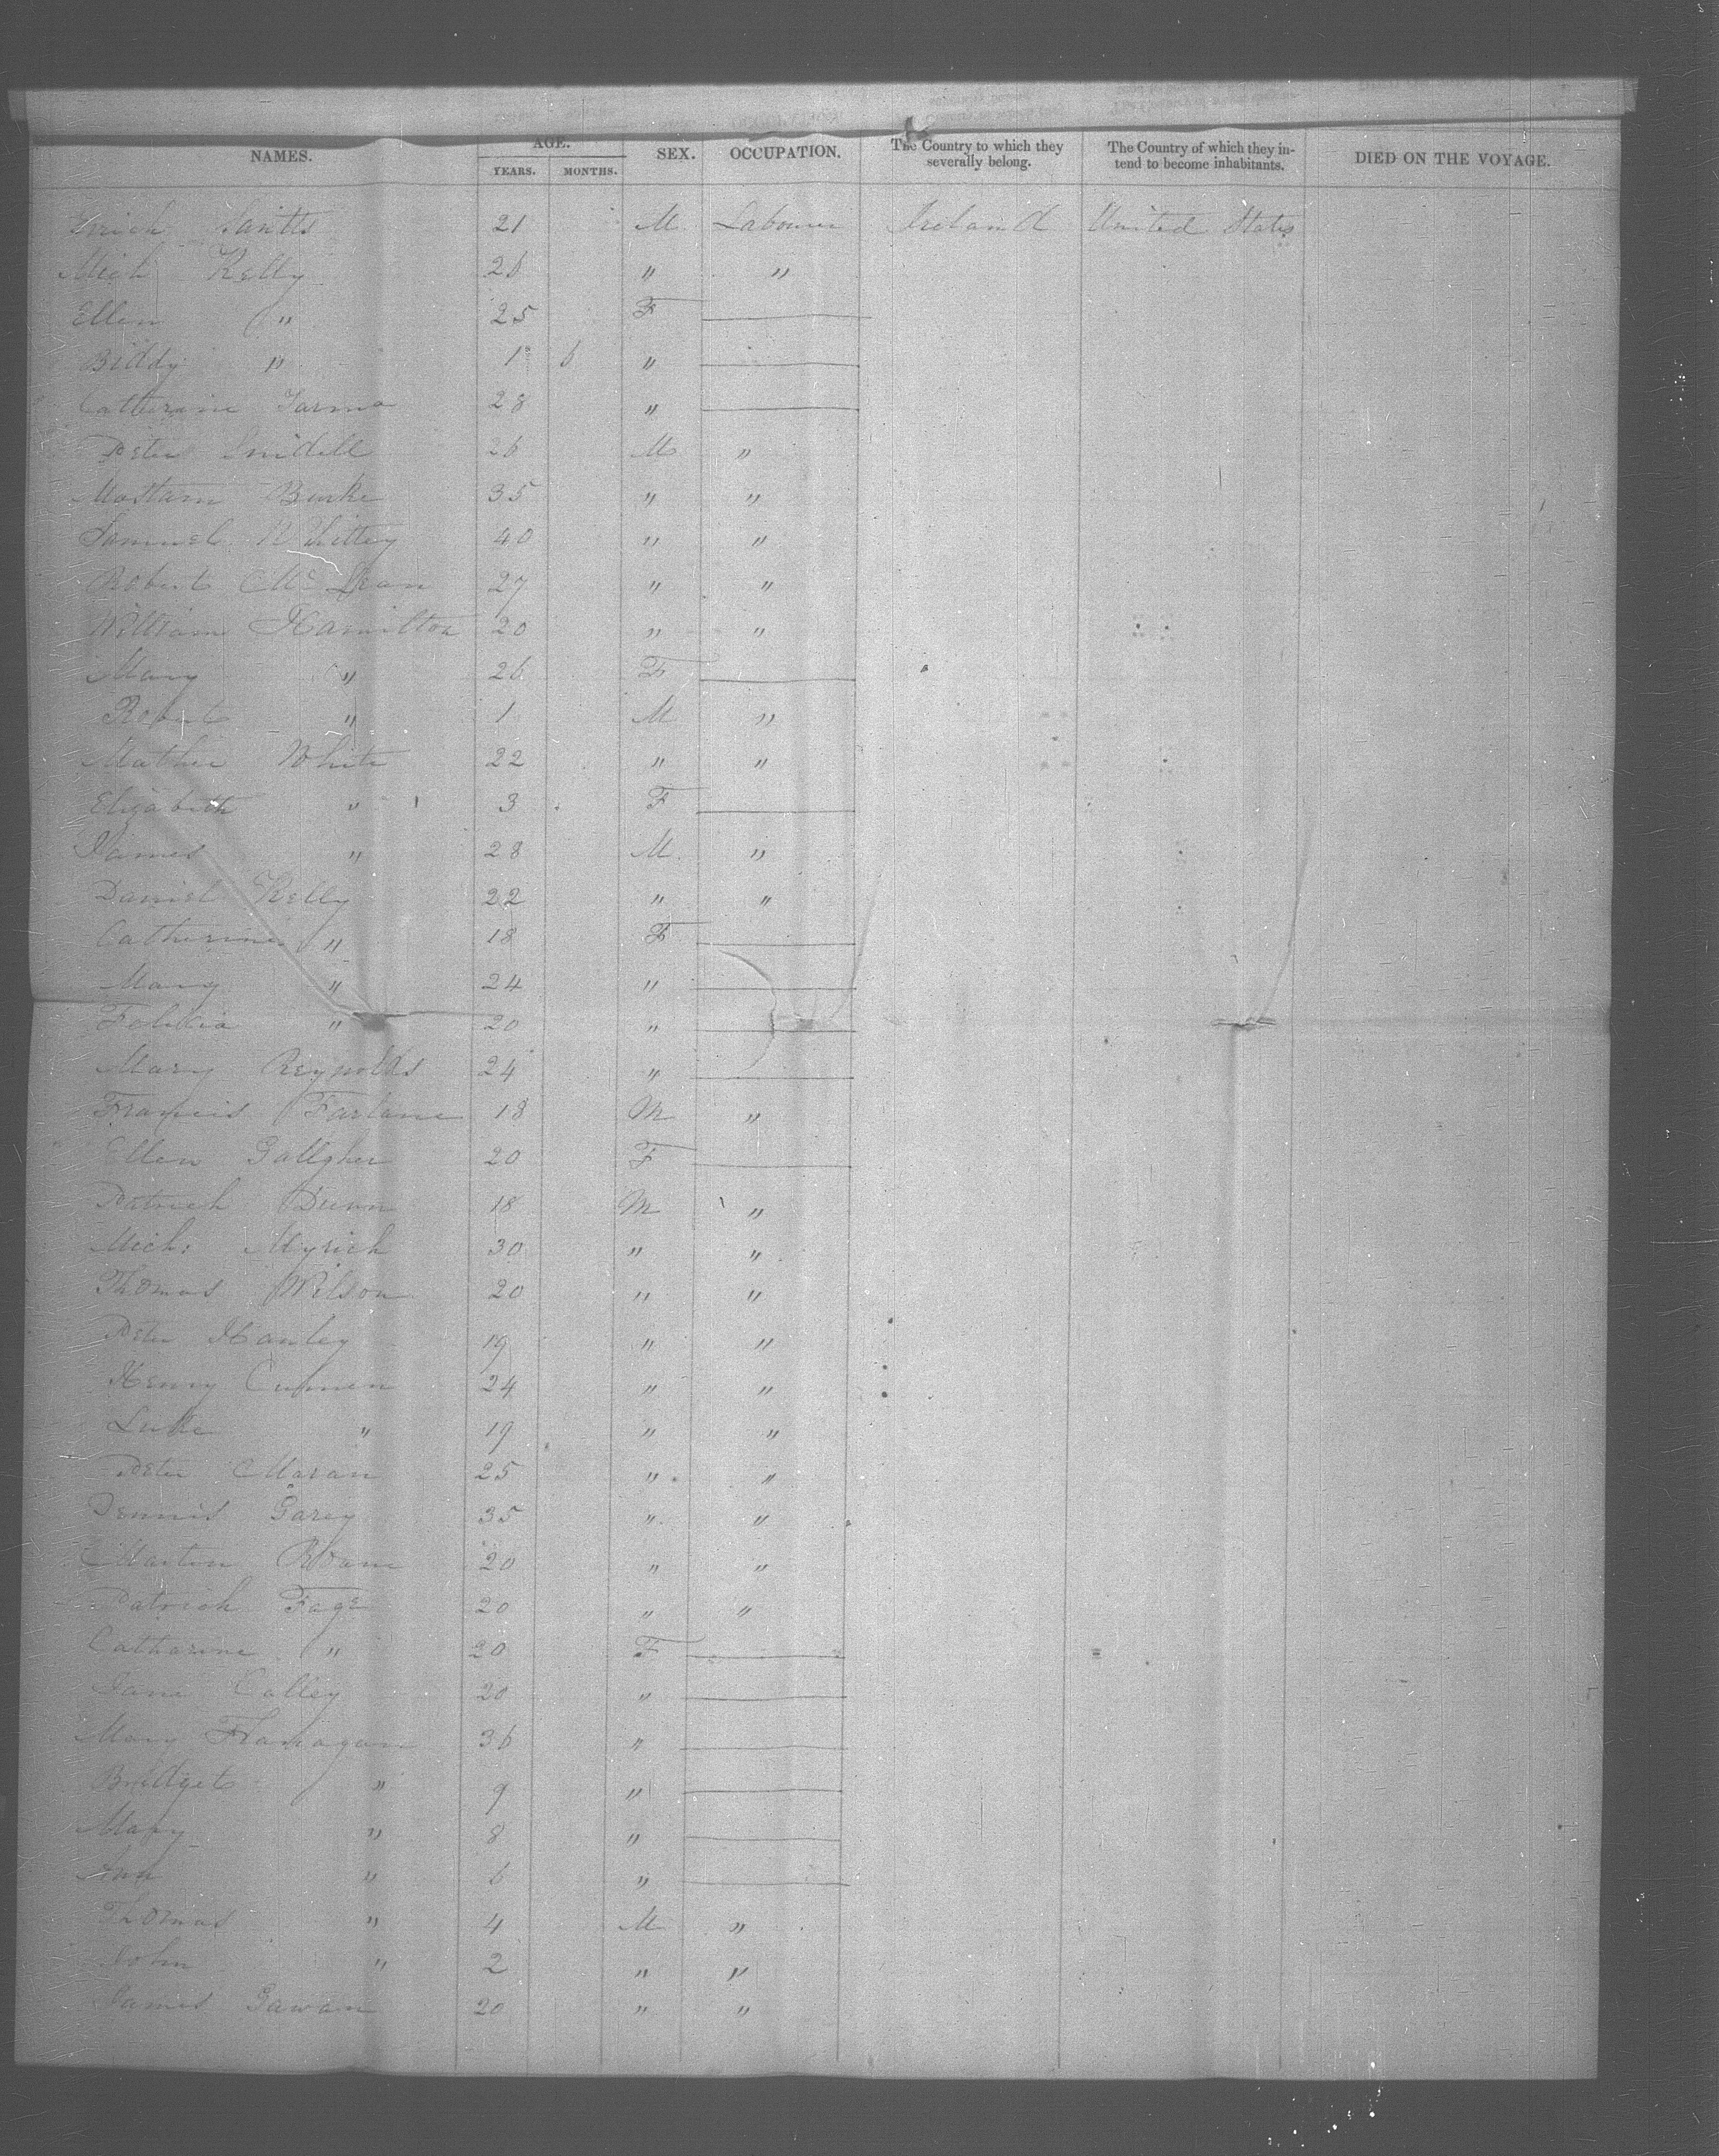 NAMES. AGE. YEARS. MONTHS. SEX. OCCUPATION. The Country to which they severally belong. The Country of which they intend to become inhabitants. DIED ON THE VOYAGE.
21 M Labourer Ireland United States
Mich Kelly 26 " "
Ellen " 25 F
Biddy " 1 6 "
Catherine 28 "
Peter 26 M "
Burke 35 " "
Samuel 40 " "
Robert Mc Lean 27 " "
William Hamilton 20 " "
Mary " 26 F
Robert " 1 M "
Mathew White 22 " "
Elizabeth " 3 F
James " 28 M "
Daniel Kelly 22 " "
Catherine " 18 F
Mary " 24 "
" 20 "
Mary Reynolds 24 "
Francis Farlane 18 M "
Ellen Gallgher 20 F
Patrick Dunn 18 M "
Mich: Myrick 30 " "
Thomas Wilson 20 " "
Peter Hanley 19 " "
Henry 24 " "
Luke " 19 " "
Peter Moran 25 " "
Dennis Garey 35 " "
Martin 20 " "
Patrick 20 " "
Catharine " 20 F
Jane Colley 20 "
Mary Flanagan 36 "
Bridget " 9 "
Mary " 8 "
Ann " 6 "
Thomas " 4 M "
John " 2 " "
James Gawan 20 " "